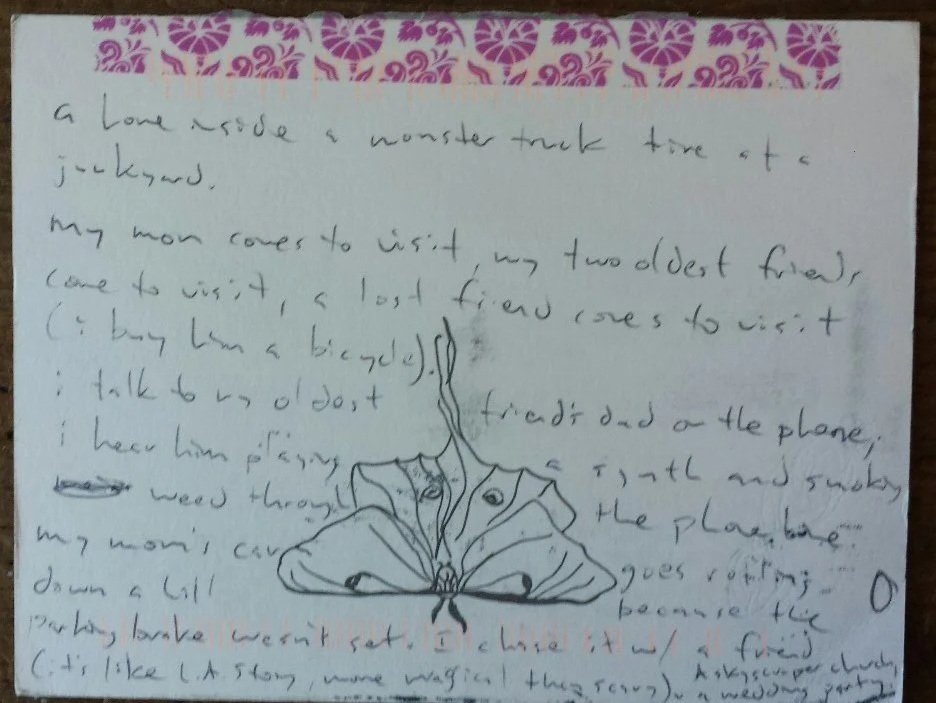 a home inside a monster truck tire at a
junkyard.
my mom comes to visit, my two oldest friends
come to visit, a lost friend comes to visit
(i buy him a bicycle).
i talk to my oldest friend's dad on the phone,
i hear him playing a synth and smoking
weed through the phone
my mom's car goes rolling
down a hill because the
parking brake wasn't set. I chase it w/ a friend
(it's like L.A. Story, more magical than scary).
A skyscraper church,
a wedding party.